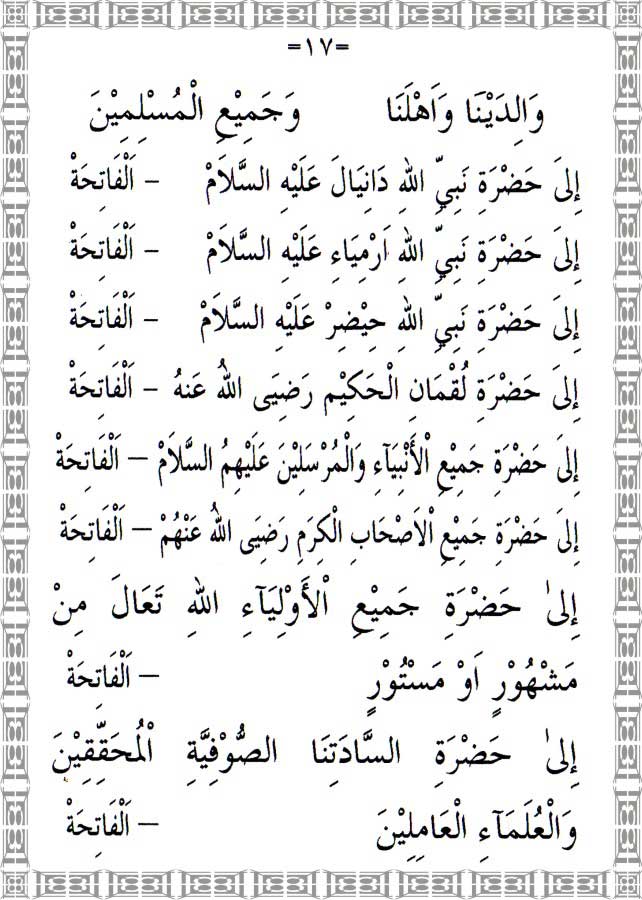 =١٧=
وَالِدَيْنَا وَاَهْلَنَا وَجَمِيْعِ الْمُسْلِمِيْنَ
إِلىَ حَضْرَةِ نَبِيِّ اللهِ دَانِيَالَ عَلَيْهِ السَّلَامْ – اَلْفَاتِحَةْ
إِلىَ حَضْرَةِ نَبِيِّ اللهِ اَرْمِيَاءِ عَلَيْهِ السَّلَامْ – اَلْفَاتِحَةْ
إِلىَ حَضْرَةِ نَبِيِّ اللهِ حِيْضِرْ عَلَيْهِ السَّلَامْ – اَلْفَاتِحَةْ
إِلىَ حَضْرَةِ لُقْمَانِ الْحَكِيْمِ رَضِيَى اللهُ عَنهُ – اَلْفَاتِحَةْ
إِلىَ حَضْرَةِ جَمِيْعِ الْأَنْبِيَآءِ وَالْمُرْسَلِيْنَ عَلَيْهِمُ السَّلَامْ – اَلْفَاتِحَةْ
إِلىَ حَضْرَةِ جَمِيْعِ الْاَصْحَابِ الْكِرَمِ رَضِيَى اللهُ عَنْهُمْ – اَلْفَاتِحَةْ
إِلىٰ حَضْرَةِ جَمِيْعِ الْأَوْلِيَآءِ اللهِ تَعَالَ مِنْ
مَشْهُوْرٍ اَوْ مَسْتُوْرٍ – اَلْفَاتِحَةْ
إِلىٰ حَضْرَةِ السَّادَتِنَا الصُّوْفِيَّةِ الْمُحَقِّقِيْنَ
وَالْعُلَمَآءِ الْعَامِلِيْنَ – اَلْفَاتِحَةْ